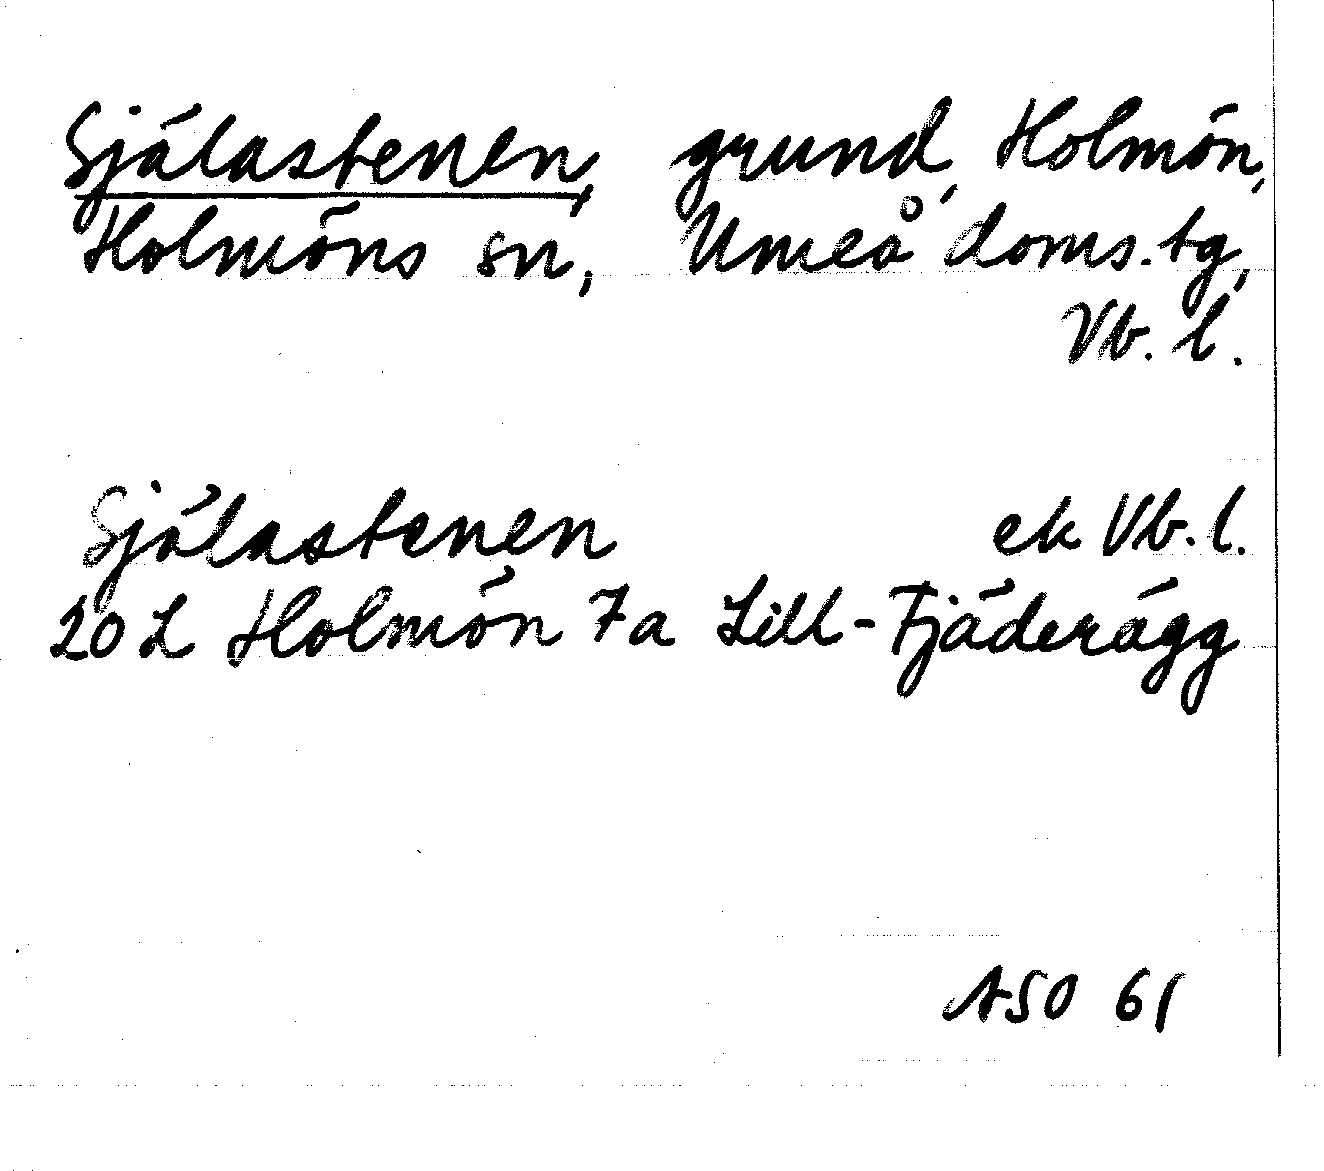 Själastenen, grund, Holmön,
Holmöns sn, Umeå doms.tg,
Vb. l.
Själastenen ek Vb. l.
20 L Holmön 7a Lill-Fjäderägg
ASO 61